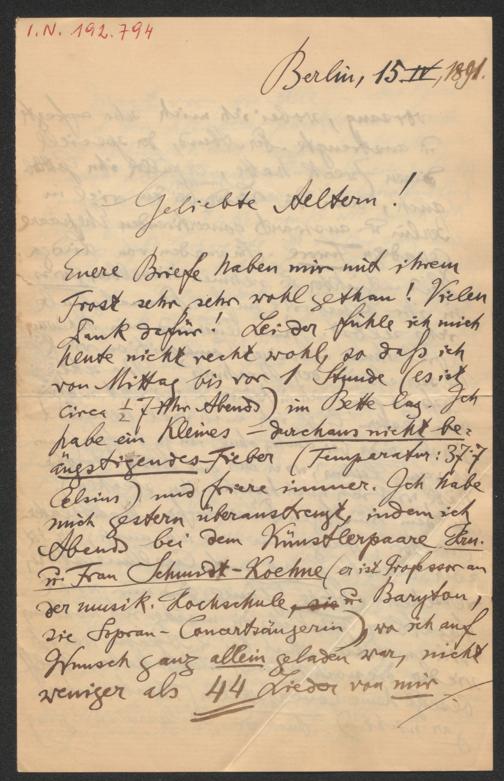 I.N. 192.794
Berlin, 15 IV, 1891.
Geliebte Aeltern!
Euere Briefe haben mir mit ihrem
Trost sehr, sehr wohl gethan! Vielen
Dank dafür! Leider fühle ich mich
heute nicht recht wohl, so daß ich
von Mittag bis vor 1 Stunde (es ist
circa ½7 Uhr Abends) im Bette lag. Ich
habe ein kleines – durchaus nicht be=
ängstigendes Fieber (Temperatur: 37·7
Celsius) und friere immer. Ich habe
mich gestern überanstrengt, indem ich
Abends bei dem Künstlerpaare Hrn.
u. Frau Schmidt-Koehne (er ist Professor an
der musik. Hochschule, sie u. Baryton,
sie Sopran-Concertsängerin), wo ich auf
Wunsch ganz allein geladen war, nicht
weniger als 44 Lieder von mir